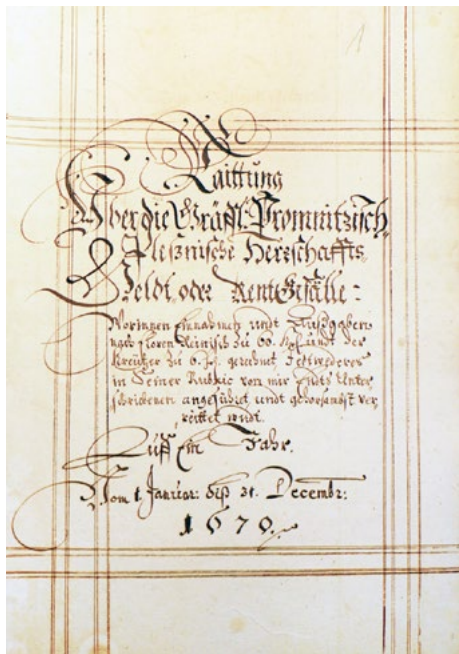 1
Raittung
Über die Gräffl: Promnitzisch
Pleßnische Herrschaffts
Geldt, oder Rent Gefälle:
Worinnen Einnahmen undt Außgaben
nach Floren Reinisch zu 60. undt der
Kreützer zu 6. gerechnet, Jettwederes
in Seiner Rubric von mir Endts Unter
schribenen angeführt undt gehorsambst ver
reittet wirdt.
Auff Ein Jahr.
Vom 1. Januar: biß 31. Decembr:
1670.